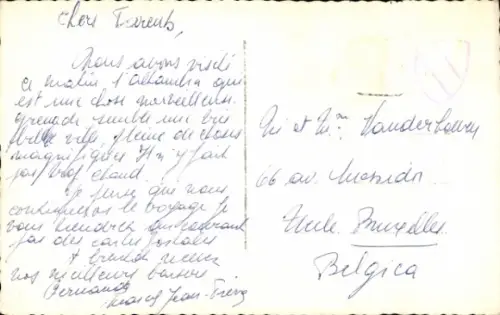 Chers Parents,
Nous avons visité
ce matin l'alhambra qui
est une chose merveilleuse.
grenade semble une très
belle ville, pleine de choses
magnifiques Il n'y fait
pas trop chaud.
Je pense que nous
continuerons le voyage je
vous tiendrez au courant
par des cartes postales
A bientôt recevez
nos meilleurs baisers
Fernande Jean-Pierre
Mr et Mme
66 av. Messidor
Uccle. Bruxelles.
Belgica